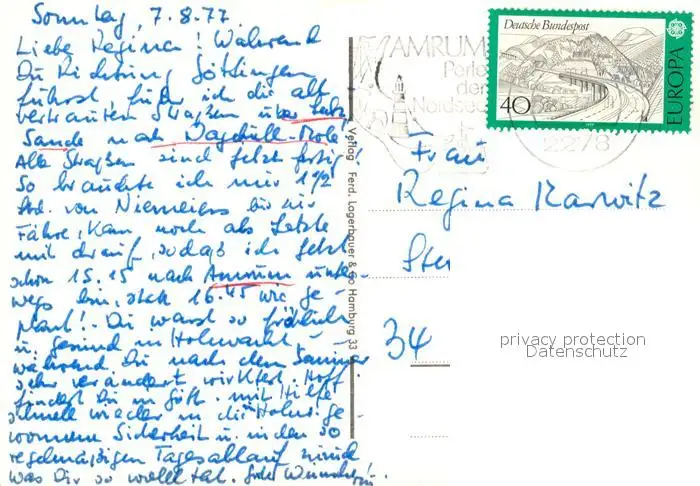 Sonntag, 7.8.77.
Liebe Regina! Während
Du Richtung Göttingen
fährst, fuhr ich die alt
vertrauten Straßen über
Sande nach Dagebüll-Mole!
Alle Straßen sind jetzt fertig,
So brauchte ich nur 1 1/2
Std. von Niemeiers bis zur
Fähre, kam noch als Letzte
mit drauf, sodaß ich jetzt
schon 15.15 nach Amrum unter-
wegs bin, statt 16.45 wie ge-
plant! Du warst so fröhlich
u. gesund in
während Du nach dem
sehr verändert wirktest. Hoff
findest Du in Gött. mit Hilfe
schnell wieder in die ge
wonnene Sicherheit u. in den so
regelmäßigen Tagesablauf zurück
was Dir so wohl tat. Gute Wünsche!
Verlag Ferd. Lagerbauer & Co Hamburg 33
AMRUM
Perle
der
Nordsee
2278
Deutsche Bundespost
40
EUROPA
Frau
Regina Karwitz
34
privacy protection
Datenschutz